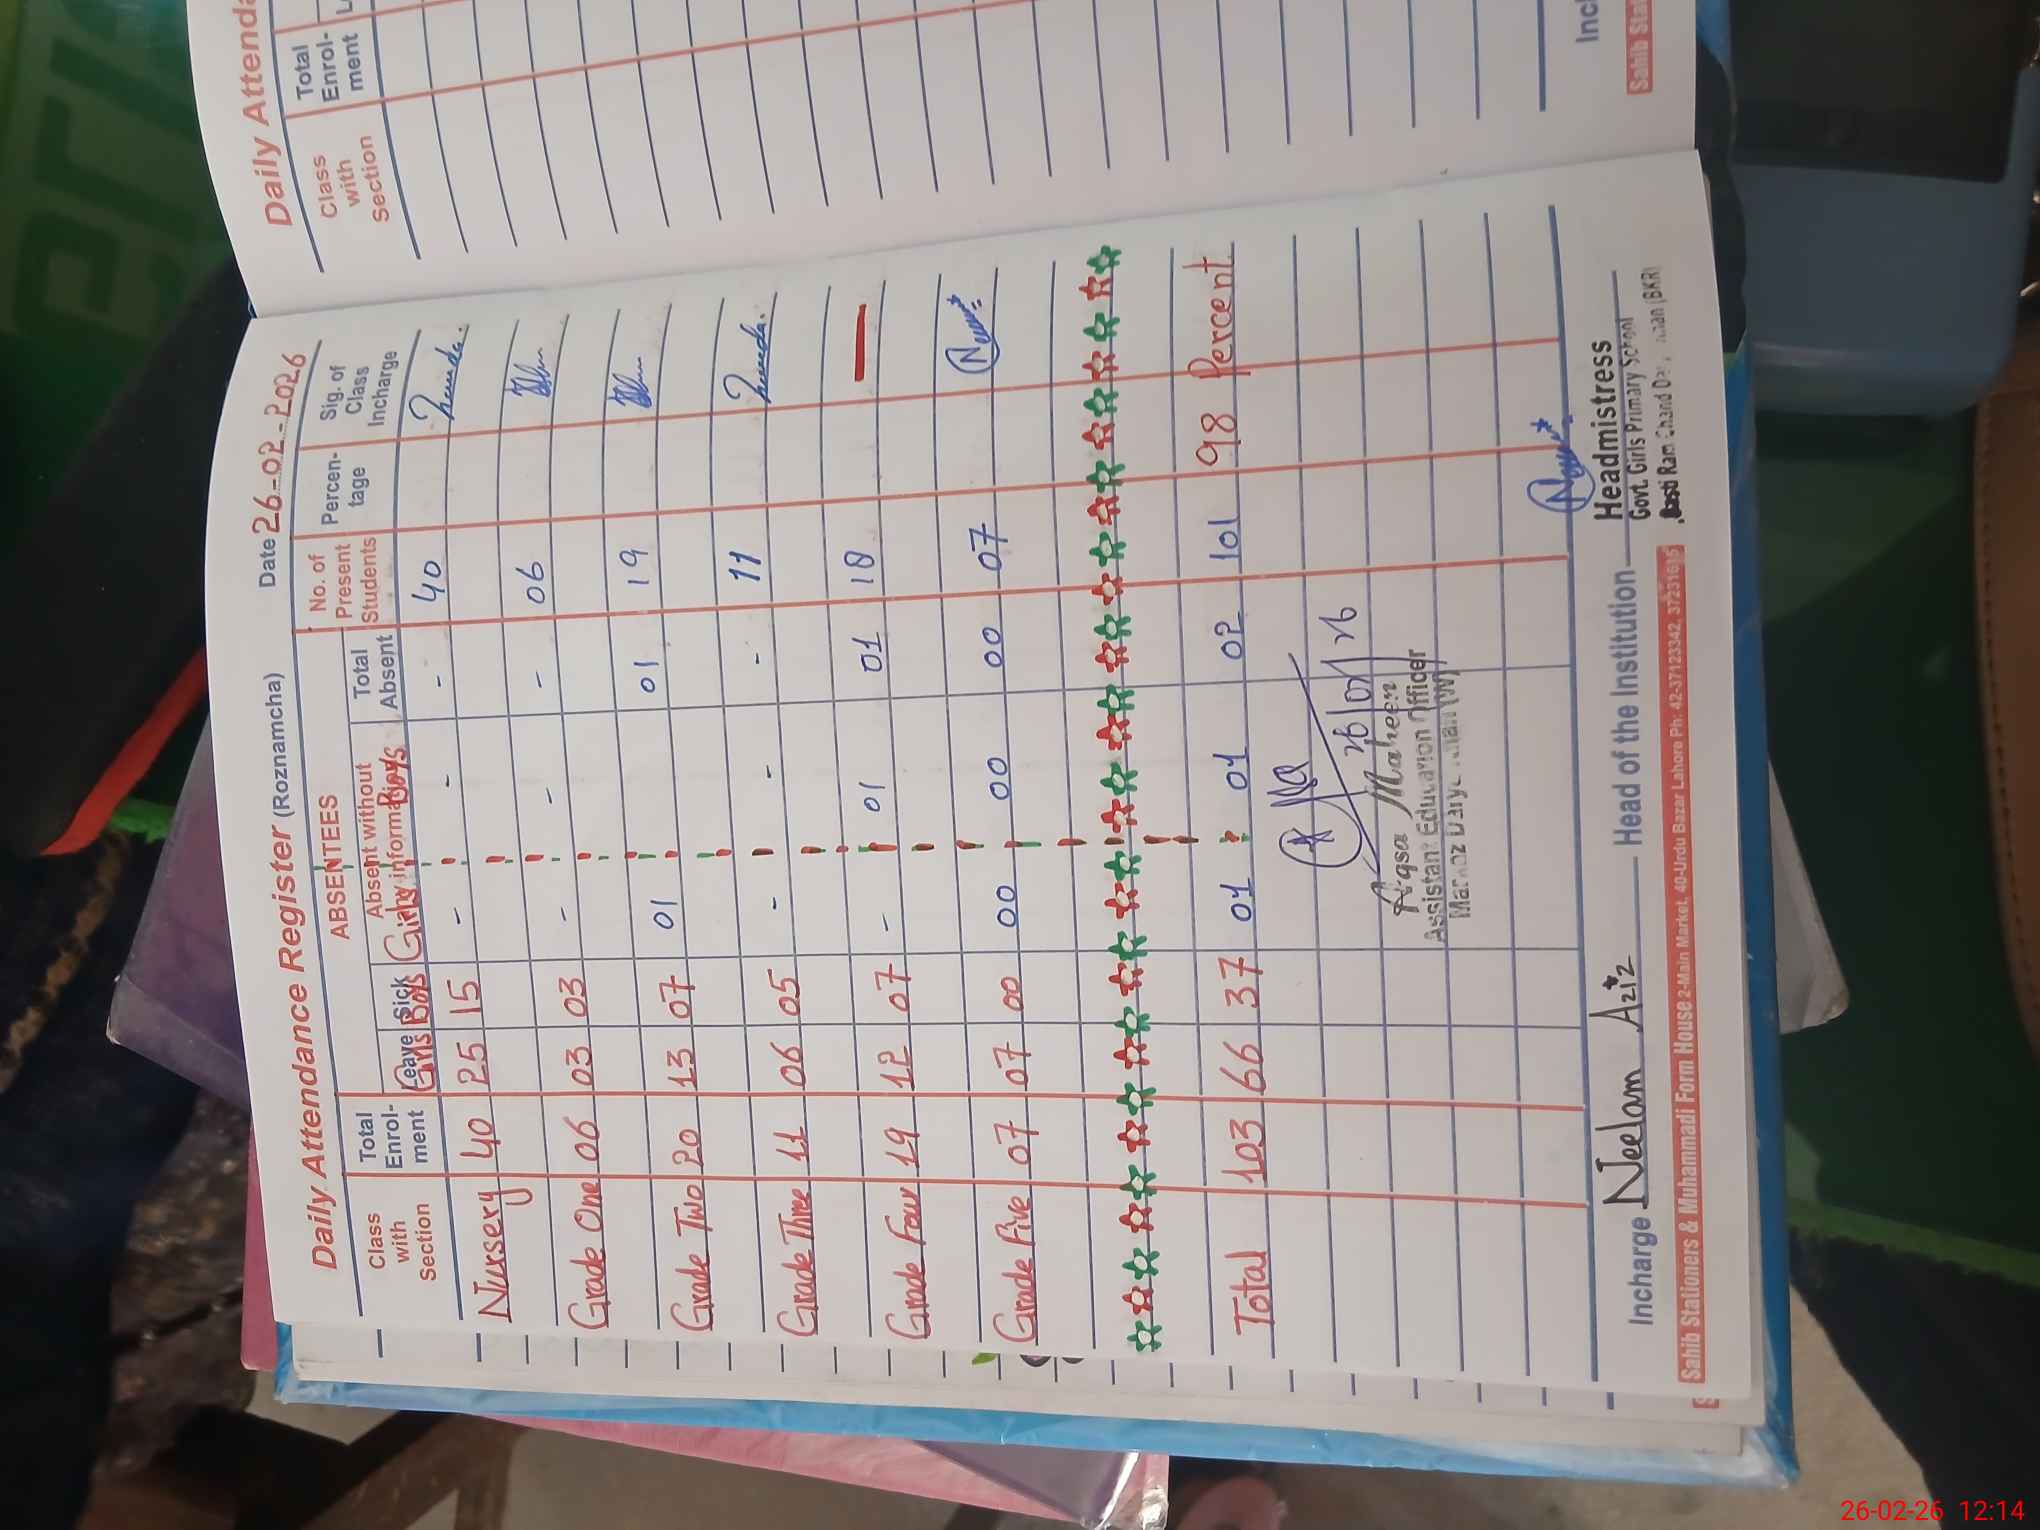 Daily Attendance Register (Roznamcha) Date 26-02-2026
Class with Section Total Enrol-ment ABSENTEES No. of Present Students Percen-tage Sig. of Class Incharge
Leave Sick Absent without any information Total Absent
Girls Boys Girls Boys
Nursery 40 25 15 - - - 40
Grade One 06 03 03 - - - 06
Grade Two 20 13 07 01 01 19
Grade Three 11 06 05 - - - 11
Grade Four 19 12 07 - 01 01 18
Grade Five 07 07 00 00 00 00 07
Total 103 66 37 01 01 02 101 98 Percent
Aqsa Maheen
Assistant Education Officer
Incharge Neelam Aziz Head of the Institution
Headmistress
Govt. Girls Primary School
Basti Ram Chand
Sahib Stationers & Muhammadi Form House 2-Main Market, 40-Urdu Bazar Lahore Ph: 42-37123342,
Daily Attenda
Class with Section Total Enrol-ment
Inc
Sahib Stat
26-02-26 12:14